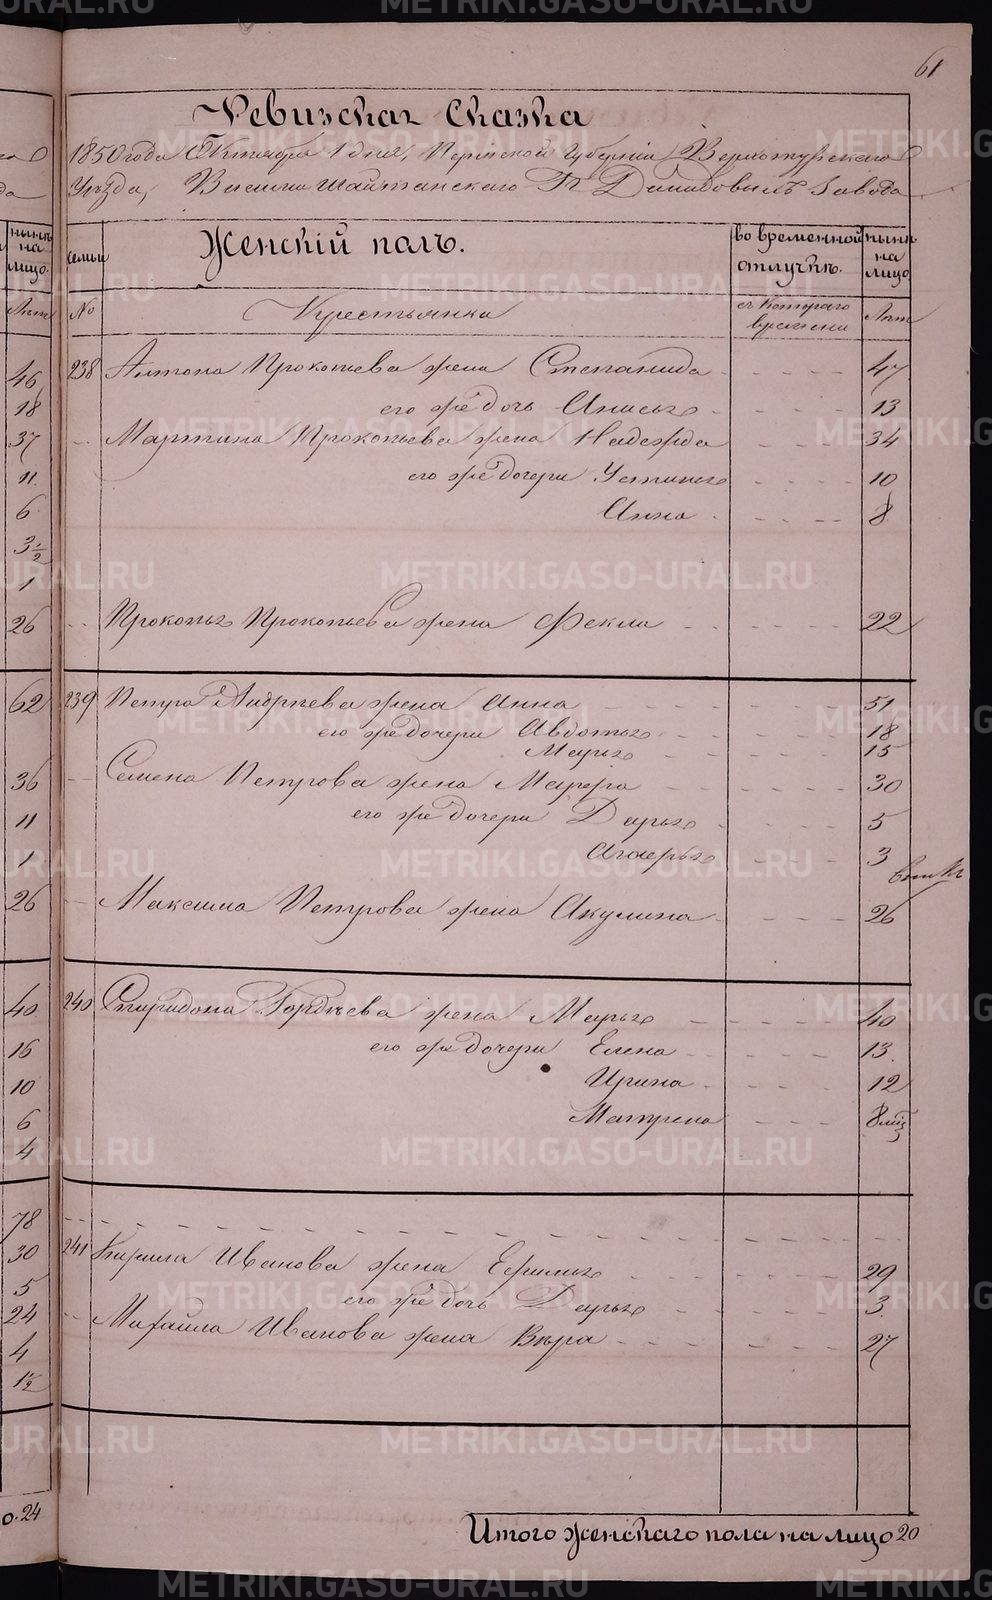 61
Ревизская Сказка
1850 года Октября 1 дня, Пермской Губернiи Верхотурскаго
Уѣзда, Висимошайтанскаго П. Демидовыхъ Завода
семьи
Женскiй полъ.
во временной отлучкѣ.
нынѣ на лицо
№
Крестьянка
съ котораго времени
Лѣта
46 238 Антона Прокопьева жена Степанида 47
18 его же дочь Анисья 13
37 Мартина Прокопьева жена Надежда 34
11 его же дочери Устинья 10
6 Анна 8
3 1/2
1
26 Прокопья Прокопьева жена Фекла 22
62 239 Петра Андреева жена Анна 51
его же дочери Авдотья 18
Марья 15
36 Семена Петрова жена Марфа 30
11 его же дочери Дарья 5
1 Агафья 3
26 Максима Петрова жена Акулина 26
40 240 Спиридона Гордѣева жена Марья 40
16 его же дочери Елена 13
10 Ирина 12
6 Матрена 8 мѣц
4
78
30 241 Кирила Иванова жена Ефимья 29
5 его же дочь Дарья 3
24 Михайла Иванова жена Вѣра 27
4
1 1/2
о. 24
Итого женскаго пола на лицо 20
METRIKI.GASO-URAL.RU